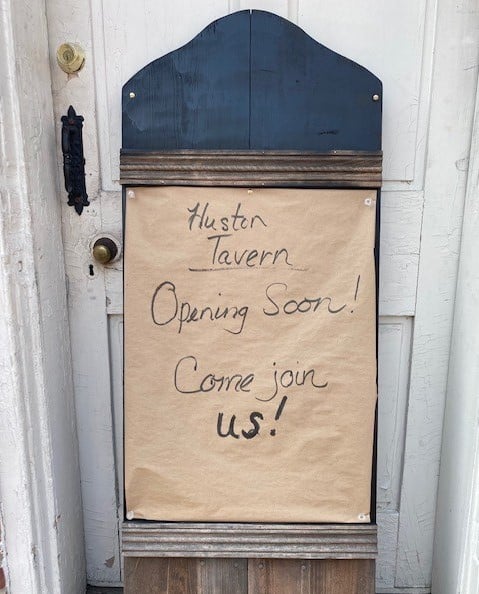 Huston
Tavern
Opening Soon!
Come join
us!